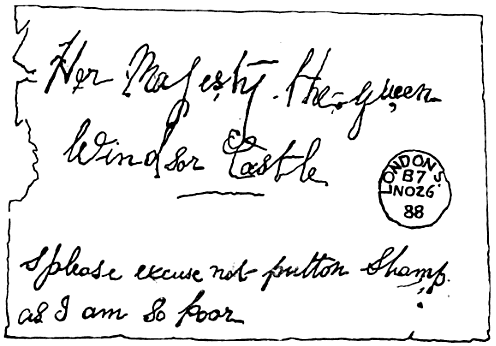 Her Majesty. the Queen
Windsor Castle
LONDON S.
B7
NO26
88
please excuse not putton Stamp.
as I am so poor